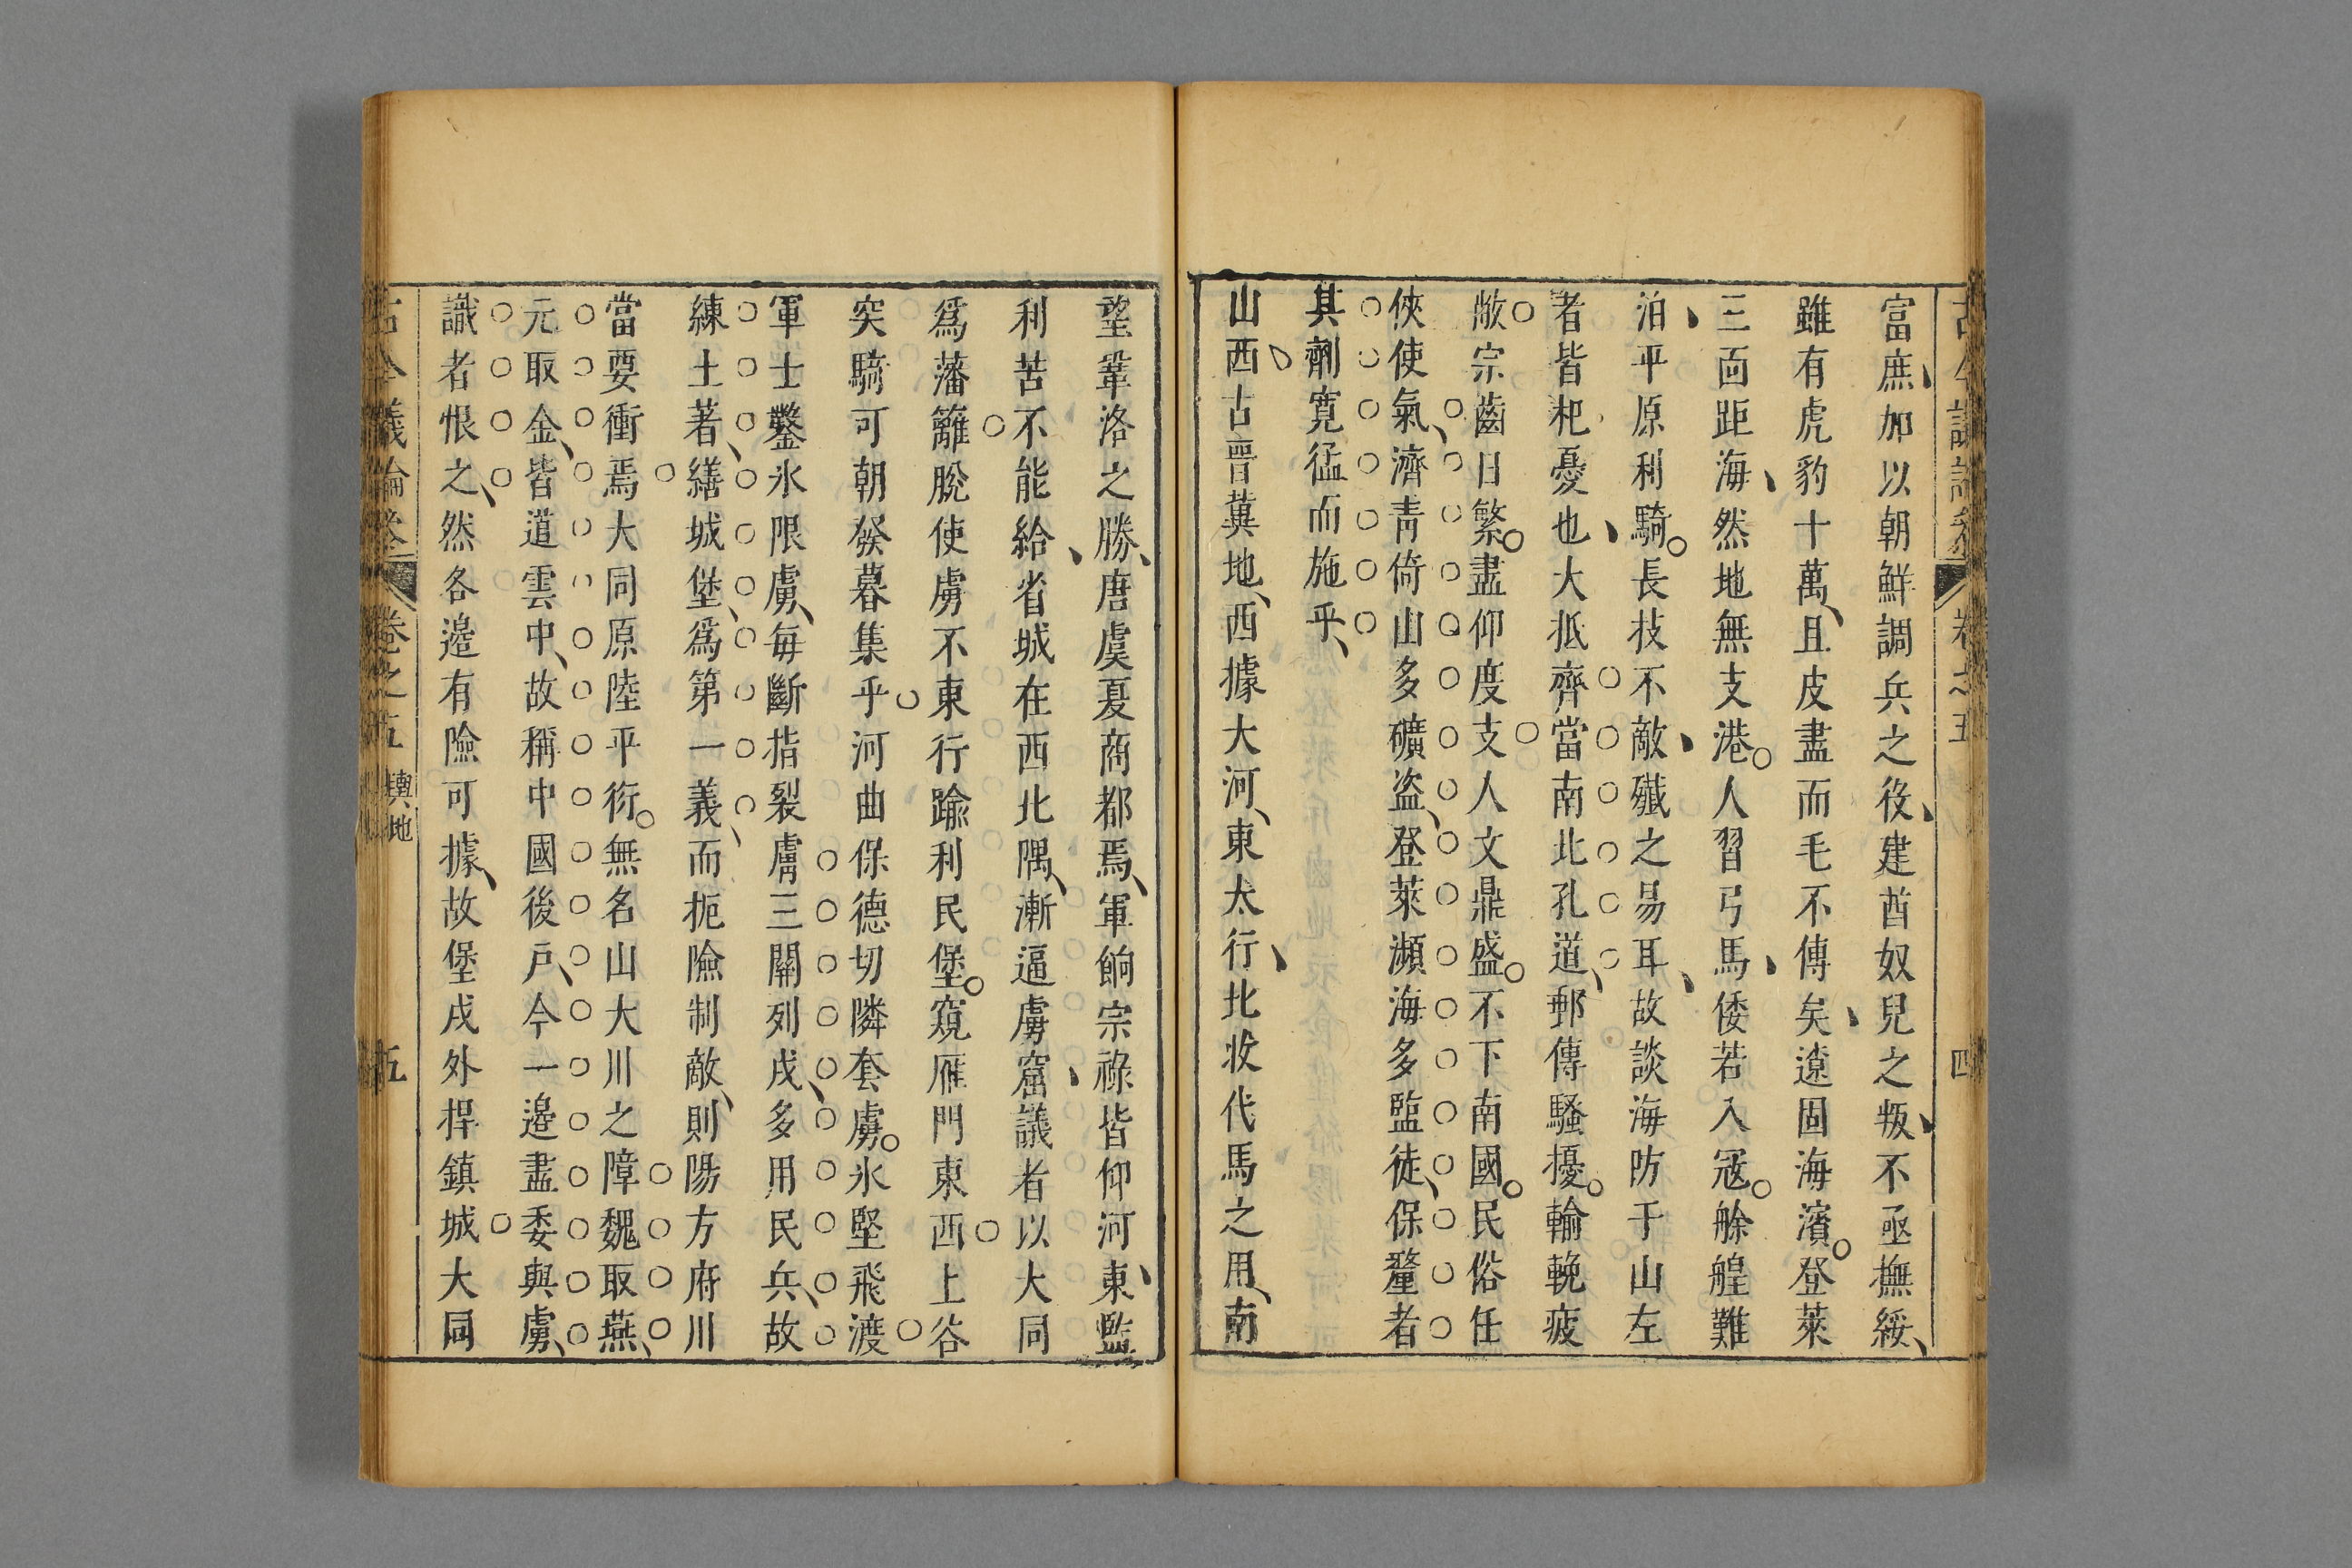 富庶加以朝鮮調兵之後建酋奴兒之叛不亟撫綏
雖有虎豹十萬且皮盡而毛不傳矣遼固海濱登萊
三面距海然地無支港人習弓馬倭若入冦艅艎難
泊平原利騎長技不敵殲之易耳故談海防于山左
者皆杞憂也大抵齊當南北孔道郵傳騷擾輸輓疲
敝宗齒日繁盡仰度支人文鼎盛不下南國民俗任
俠使氣濟青倚山多礦盗登萊瀕海多監徒保釐者
其劑寛猛而施乎
山西古晉冀地西據大河東太行北收代馬之用南
望鞏洛之勝唐虞夏商都焉軍餉宗祿皆仰河東監
利苦不能給省城在西北隅漸逼虜窟議者以大同
爲藩籬脫使虜不東行踰利民堡窺雁門東西上谷
突騎可朝發暮集乎河曲保德切隣套虜氷堅飛渡
軍士鑿氷限虜每斷指裂膚三關列戍多用民兵故
練土著繕城堡爲第一義而扼險制敵則陽方府川
當要衝焉大同原陸平衍無名山大川之障魏取燕
元取金皆道雲中故稱中國後戸今一邉盡委與虜
識者恨之然各邉有險可據故堡戍外捍鎮城大同
古今議論叅
卷之五
輿地
五